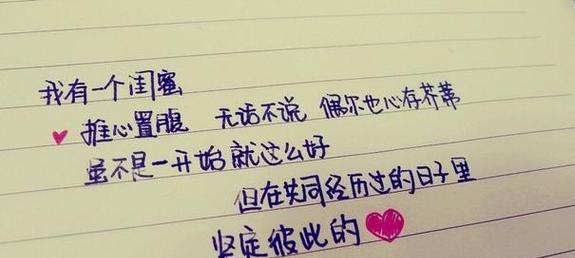 我有一个闺蜜
推心置腹 无话不说 偶尔也心存芥蒂
虽不是一开始就这么好
但在共同经历过的日子里
坚定彼此的